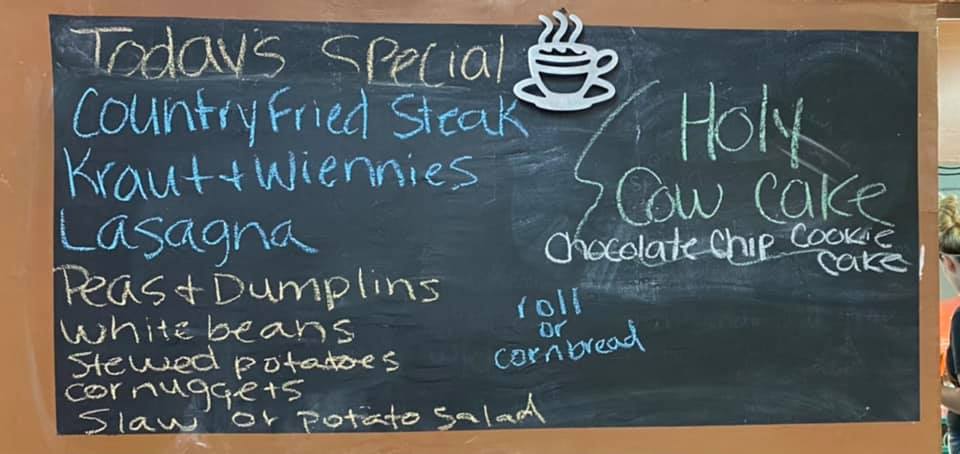 Today's Special
Country Fried Steak
Kraut + Wiennies
Lasagna
Peas + Dumplins
white beans
stewed potatoes
cornuggets
Slaw or potato salad
roll
or
cornbread
Holy
Cow Cake
Chocolate Chip Cookie
cake